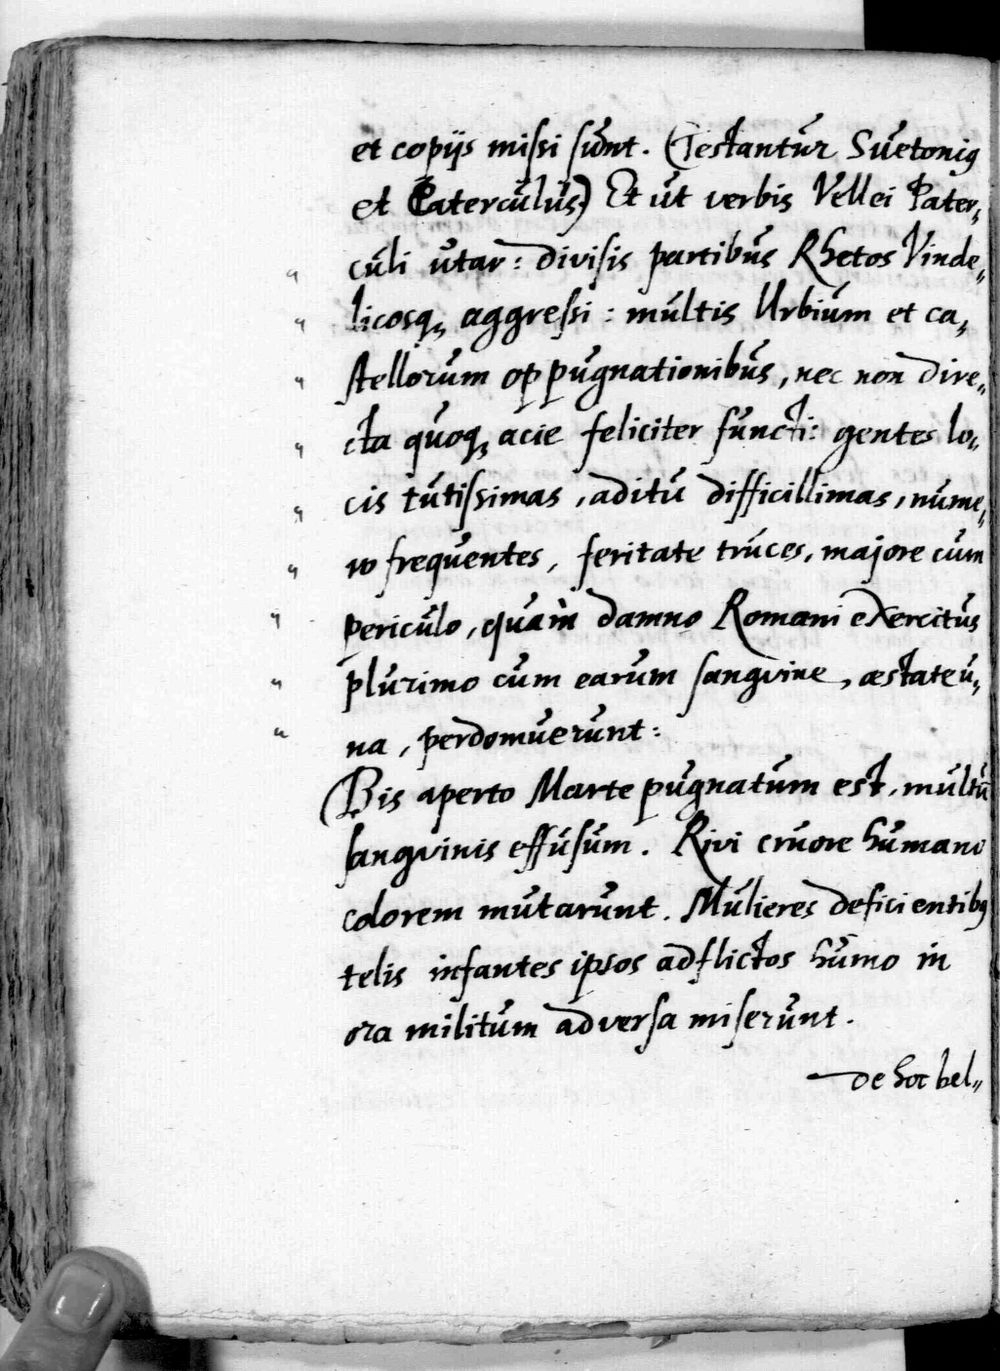 et copijs missi sunt. (Testantur Suetoniꝰ
et Paterculus) Et ut verbis Vellei Pater„
" culi utar: divisis partibus Rhetos Vinde„
" licosq, aggressi: multis Urbium et ca„
" stellorum oppugnationibus, nec non dire„
" cta quoq, acie feliciter functi: gentes lo„
" cis tutissimas, aditu difficillimas, nume„
" ro frequentes, feritate truces, majore cum
" periculo, quàm damno Romani exercitus
" plurimo cum earum sangvine, æstate u„
" na, perdomuerunt:
(Bis aperto Marte pugnatum est, multū
sangvinis effusum. Rivi cruore humano
colorem mutarunt. Mulieres deficientibꝰ
telis infantes ipsos adflictos humo in
ora militum adversa miserunt.
de hoc bel„